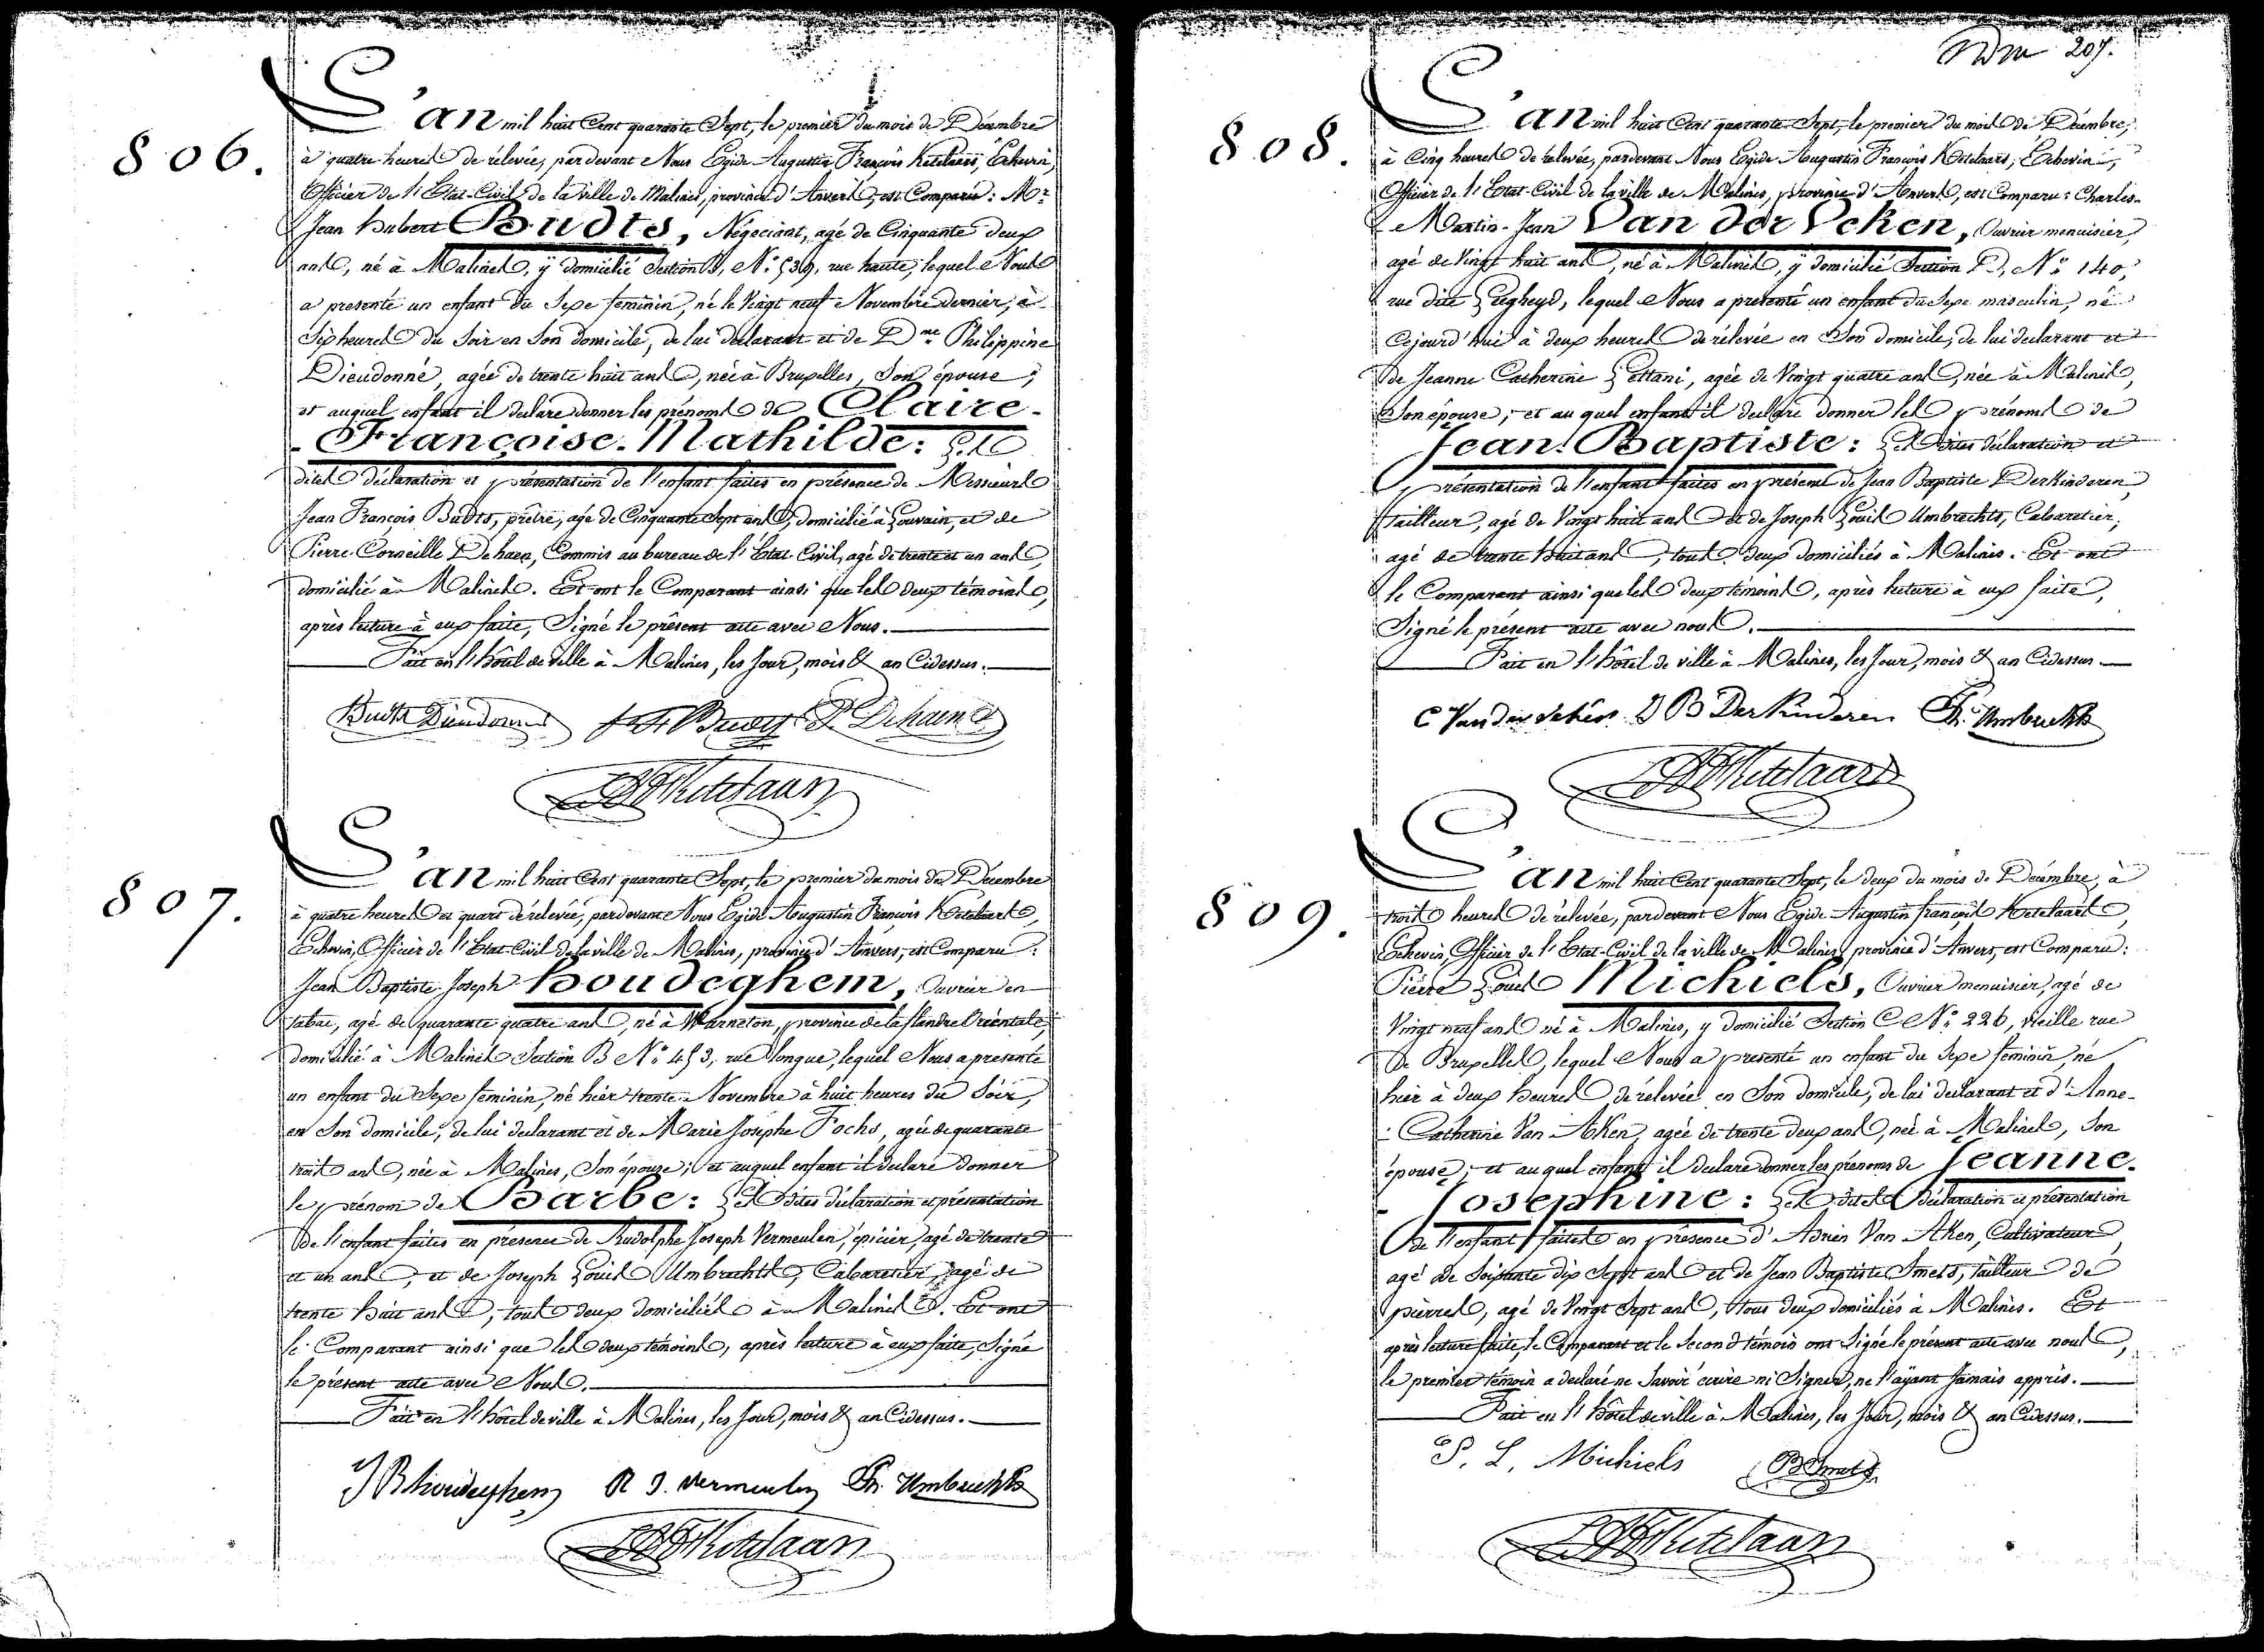 806.
L'an mil huit Cent quarante Sept, le premier du mois de Décembre
à quatre heures de rélevée, pardevant Nous Egide Augustin François Ketelaars, Echevin,
Officier de l'Etat-Civil de la ville de Malines, province d'Anvers, est Comparu: Mr
Jean hubert Budts, Négociant, agé de Cinquante deux
ans, né à Malines, y domicilié Section B, No 539, rue haute, lequel Nous
a presenté un enfant du Sexe feminin, né le Vingt neuf Novembre dernier, à
Six heures du Soir en Son domicile, de lui declarant et de Dme Philippine
Dieudonné, agée de trente huit ans, née à Bruxelles, Son épouse;
et auquel enfant il declare donner les prénoms de Claire-
-Françoise-Mathilde: Les
dites déclaration et présentation de l'enfant faites en présence de Messieurs
Jean François Budts, prêtre, agé de Cinquante Sept ans, domicilié à Louvain, et de
Pierre Corneille Dehaen, Commis au bureau de l'Etat-Civil, agé de trente et un ans,
domicilié à Malines. Et ont le Comparant ainsi que les deux témoins,
après lecture à eux faite, Signé le présent acte avec Nous.
Fait en l'hôtel de ville à Malines, les Jour, mois & an Cidessus.
Budts Dieudonné P. C. Dehaen
EAF Ketelaars
807.
L'an mil huit Cent quarante Sept, le premier du mois de Décembre
à quatre heures et quart de rélevée, pardevant Nous Egide Augustin François Ketelaars,
Echevin, Officier de l'Etat-Civil de la ville de Malines, province d'Anvers, est Comparu:
Jean Baptiste Joseph houdeghem, Ouvrier en
tabac, agé de quarante quatre ans, né à Warneton, province de la flandre Orientale,
domicilié à Malines Section B No 453, rue longue, lequel Nous a presenté
un enfant du Sexe feminin, né hier trente Novembre à huit heures du Soir,
en Son domicile, de lui declarant et de Marie Josephe Fochs, agée de quarante
trois ans, née à Malines, Son épouse; et auquel enfant il declare donner
le prénom de Barbe: Les dites déclaration et présentation
de l'enfant faites en présence de Rudolphe Joseph Vermeulen, épicier, agé de trente
et un ans, et de Joseph Louis Umbrechts, Cabaretier, agé de
trente huit ans, tous deux domiciliés à Malines. Et ont
le Comparant ainsi que les deux témoins, après lecture à eux faite, Signé
le présent acte avec Nous.
Fait en l'hôtel de ville à Malines, les Jour, mois & an Cidessus.
JB houdeghem R J. Vermeulen Umbrechts
EAF Ketelaars
207.
808.
L'an mil huit Cent quarante Sept, le premier du mois de Décembre,
à Cinq heures de rélevée, pardevant Nous Egide Augustin François Ketelaars, Echevin,
Officier de l'Etat-Civil de la ville de Malines, province d'Anvers, est Comparu: Charles-
-Martin-Jean Van der Veken, Ouvrier menuisier,
agé de Vingt huit ans, né à Malines, y domicilié Section D, No 140,
rue dite Leegheyd, lequel Nous a presenté un enfant du Sexe masculin, né
Cejourd'hui à deux heures de rélevée en Son domicile, de lui declarant et
de Jeanne Catherine Lettani, agée de Vingt quatre ans, née à Malines,
Son épouse; et au quel enfant il declare donner les prénoms de
Jean-Baptiste: Les dites déclaration et
présentation de l'enfant faites en présence de Jean Baptiste Derkinderen,
tailleur, agé de Vingt huit ans et de Joseph Louis Umbrechts, Cabaretier,
agé de trente huit ans, tous deux domiciliés à Malines. Et ont
le Comparant ainsi que les deux témoins, après lecture à eux faite,
Signé le présent acte avec nous.
Fait en l'hôtel de ville à Malines, les Jour, mois & an Cidessus.
C Van der Veken J B Derkinderen Umbrechts
EAF Ketelaars
809.
L'an mil huit Cent quarante Sept, le deux du mois de Décembre, à
trois heures de rélevée, pardevant Nous Egide Augustin françois Ketelaars,
Echevin, Officier de l'Etat-Civil de la ville de Malines, province d'Anvers, est Comparu:
Pierre Louis Michiels, Ouvrier menuisier, agé de
Vingt neuf ans né à Malines, y domicilié Section C No 226, Vieille rue
de Bruxelles, lequel Nous a presenté un enfant du Sexe feminin, né
hier à deux heures de rélevée en Son domicile, de lui declarant et d'Anne-
-Catherine Van Aken, agée de trente deux ans, née à Malines, Son
épouse; et au quel enfant il declare donner les prénoms de Jeanne-
-Josephine: Les dites déclaration et présentation
de l'enfant faites en présence d'Adrien Van Aken, Cultivateur,
agé de Soixante dix Sept ans et de Jean Baptiste Smets, tailleur de
pierres, agé de Vingt Sept ans, tous deux domiciliés à Malines. Et
après lecture faite, le Comparant et le Second témoin ont Signé le présent acte avec nous,
le premier témoin a declaré ne Savoir écrire ni Signer, ne l'ayant Jamais appris.
Fait en l'hôtel de ville à Malines, les Jour, mois & an Cidessus.
P. L. Michiels B Smets
EAF Ketelaars